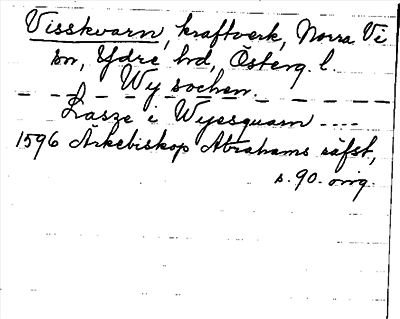 Visskvarn, kraftverk, Norra Vi
sn, Ydre hd, Österg. l.
Wy sochen.
Lasze i Wyesquarn ....
1596 Arkebiskop Abrahams räfst,
s. 90. orig.